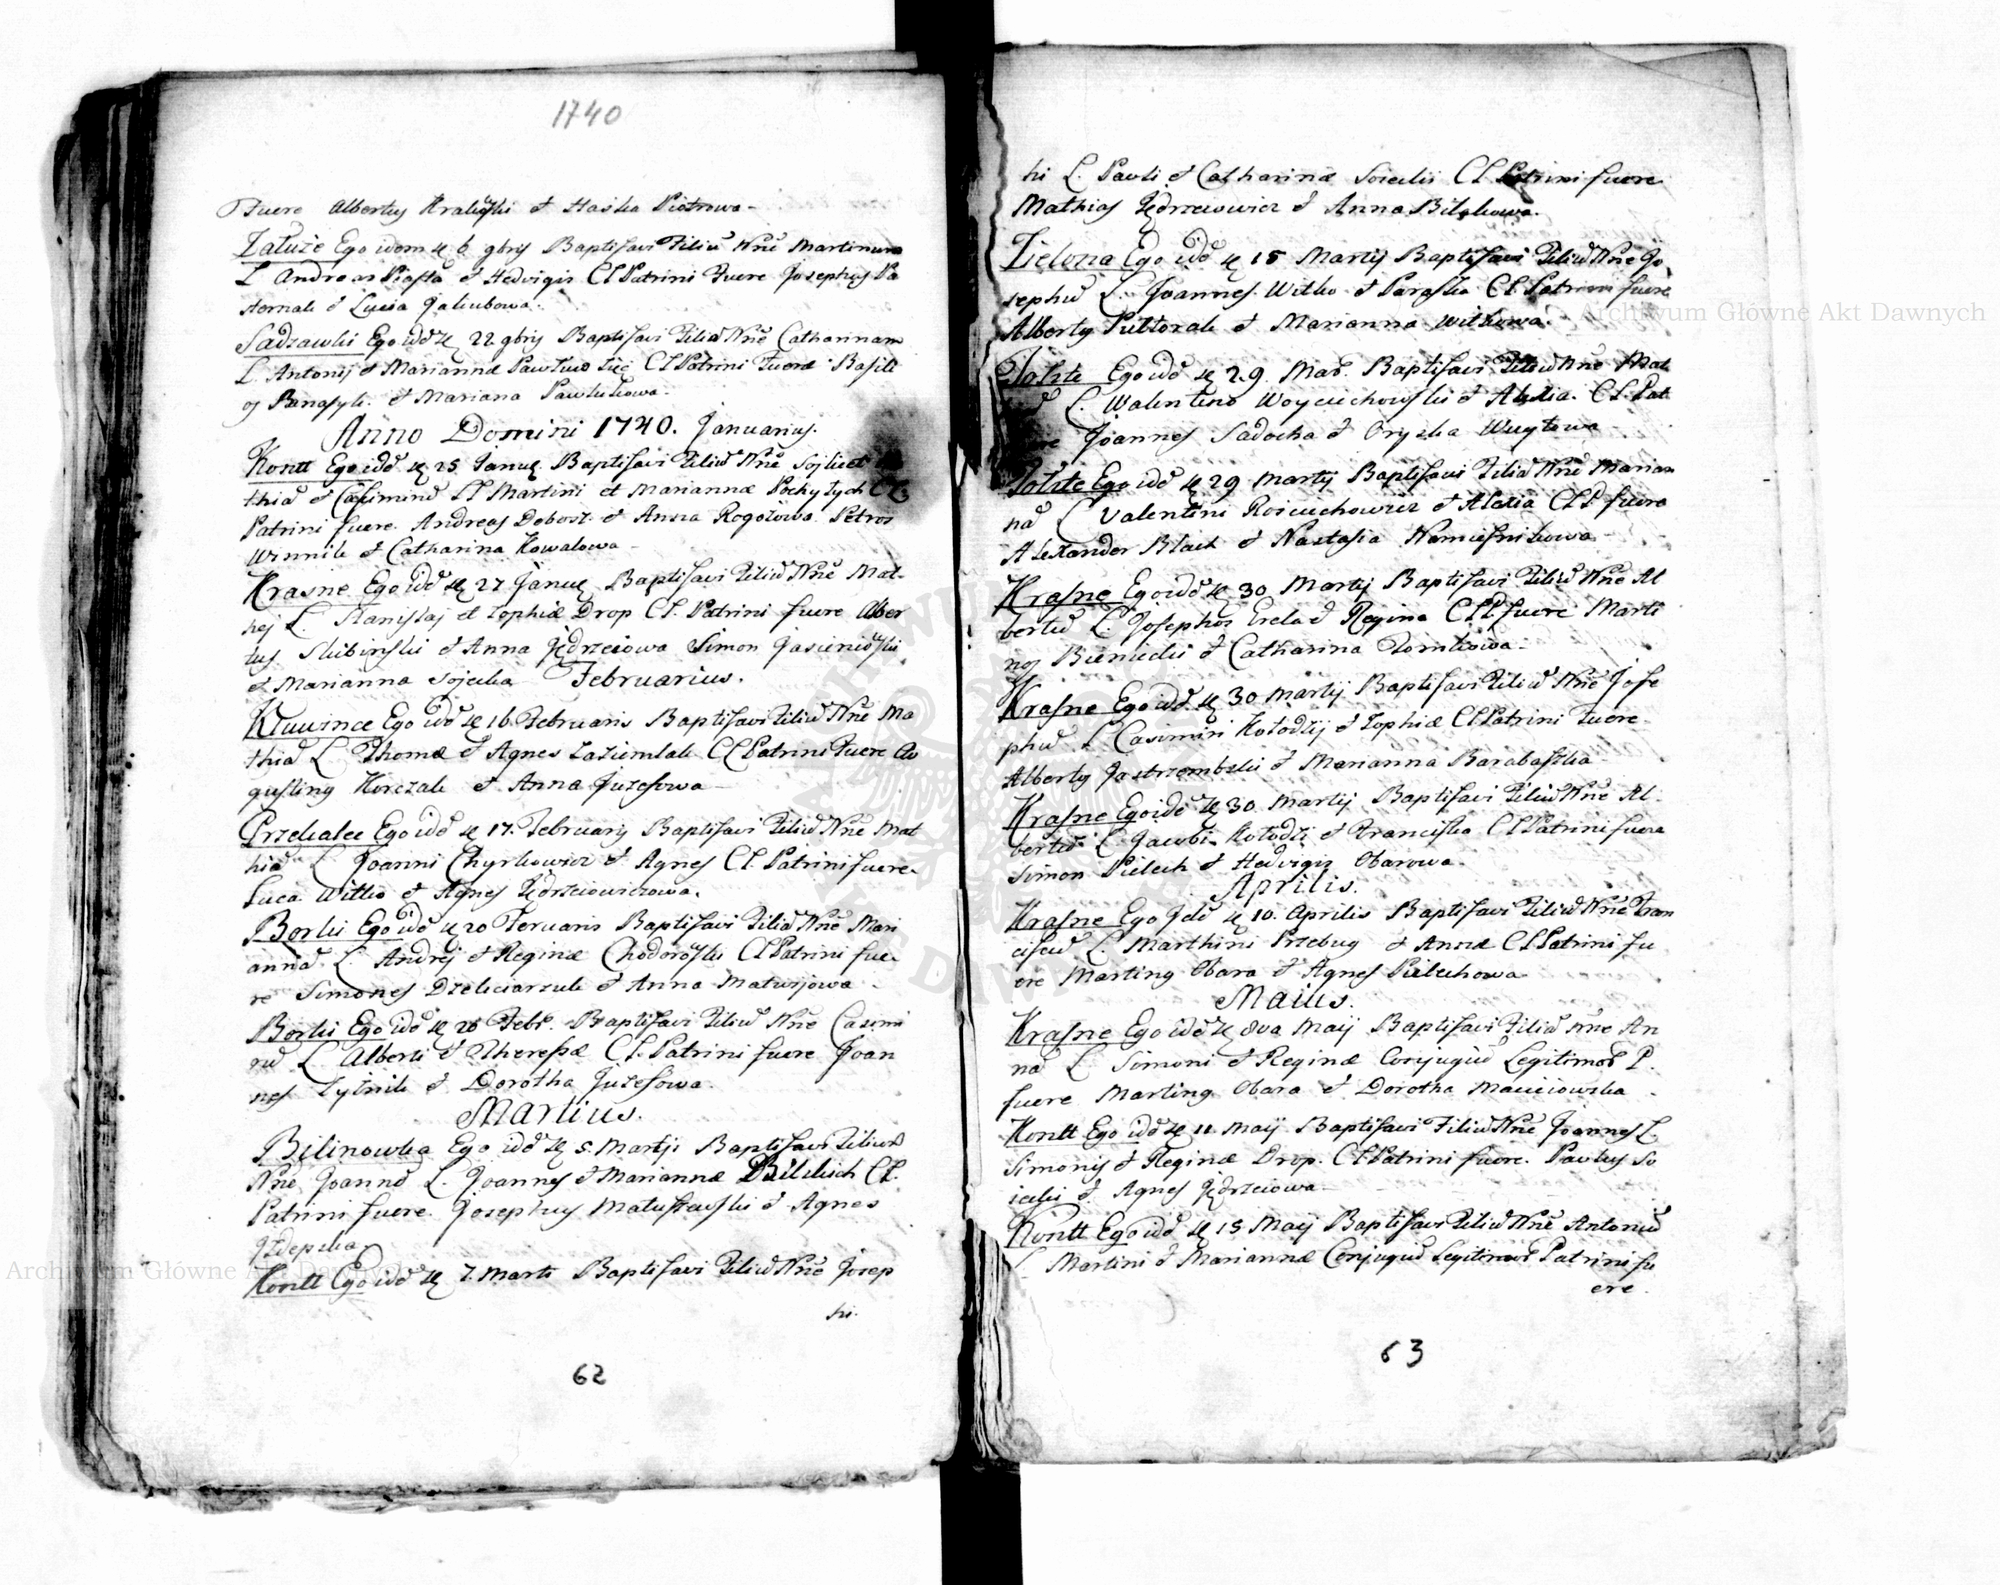 1740
Fuere Albertus Kralewski et Haska Piotrowa
Załuże Ego idem 6 9bris Baptisavi Filiu Nne Martinum
L. Andreas Piasta et Hedvigis CL Patrini Fuere Josephus Pa
sternak et Lucia Jakubowa
Sadzawki Ego ide 22 9bris Baptisavi Filia Nne Catharinam
L. Antonij et Mariannæ CL Patrini Fuere Basili
os Panasyk et Mariana Pawlukowa
Anno Domini 1740. Januarius.
Kontt Ego ide 25 Januÿ Baptisavi Filiu Nne
thia et Casimirud LL Martini et Mariannæ Pochyłych CL
Patrini fuere. Andreas Dobosz et Anna Rogozowa Petros
Winnik et Catharina Kowalowa
Krasne Ego ide 27 Januÿ Baptisavi Filiu Nne Mat-
hej L. Stanislaj et Zophiæ Drop CL. Patrini fuere Alber
tus Skibinski et Anna Jędrzeiowa Simon
et Marianna Soiecka Februarius.
Kluwince Ego ide 16 Februaris Baptisavi Filiu Nne Ma
thia L. Thomæ et Agnes CL Patrini Fuere Au
gustinus Korczak et Anna Juzefowa
Przekalec Ego ide 17. Februarij Baptisavi Filiu Nne Mat
hia L Joanni Chyrkowicz et Agnes CL Patrini fuere.
Luca Witko et Agnes Jędrzeiowiczowa.
Borki Ego ide 20 Feruaris Baptisavi Filia Nne Mari
anna L. Andrej et Reginæ Chodorowski CL Patrini fue
re Simones et Anna Matwijowa
Borki Ego ide 28 Febr. Baptisavi Filiu Nne Casimi
ru L Alberti et Theressæ CL. Patrini fuere Joan
nes Zytnik et Dorotha Juzefowa.
Martius.
Bilinowka Ego ide 5. Martji Baptisavi Filium
Nne Joanne L. Joannes et Mariannæ CL.
Patrini fuere. Josephus Matuszewski et Agnes
Kontt Ego ide 7. Marti Baptisavi Filiu Nne Josep
hi.
62
hi L. Pauli et Catharinæ Soiecki CL Patrini fuere
Mathias Jędrzeiowicz et Anna
Zielona Ego ide 15 Martij Baptisavi Filiu Nne Jo
sephu L. Joannes Witko et Paraska CL Patrini fuere
Alberty Pułtorak et Marianna Witkowa.
Tolste Ego ide 29. Mar. Baptisavi Filiu Nne Mat
L. Walentino Woyciechowski et Alexia. CL. Pat
Joannes Sadocha et Oryszka Wuytowa
Tolste Ego ide 29 Martij Baptisavi Filia Nne Marian
na L Valentini et Alexia CLP fuere
Alexander Black et Nastasia Namiesnikowa
Krasne Ego ide 30 Martij Baptisavi Filiu Nne Al
bertu L. Josephos et Regina CLP fuere Marti
nos Bieniecki et Catharina
Krasne Ego ide 30 Martij Baptisavi Filiu Nne Jose
phu L Casimiri Kołodzij et Zophiæ CL Patrini Fuere
Alberty Jastrzembski et Marianna Barabaszka
Krasne Ego ide 30. Martij Baptisavi Filiu Nne Al-
bertu L. Jacobi Kołodzi et Franciska CL Patrini fuere
Simon Pielech et Hedvigis Obarowa.
Aprilis.
Krasne Ego Ide 10. Aprilis Baptisavi Filiu Nne Fran
ciscu L. Marthini Przebug et Annæ CL Patrini fu
ere Martinus Obara et Agnes Pielechowa
Maius.
Krasne Ego ide 8va Maij Baptisavi Filia Nne An
na L Simoni et Reginæ Conjugiu Legitimor P.
fuere Martinus Obara et Dorotha Maciiowska
Kontt Ego ide 11 Maij Baptisavi Filiu Nne Joannes L.
Simonis et Reginæ Drop. CL Patrini fuere. Paulus So
iecki et Agnes Jędrzeiowa
Kontt Ego ide 15 Maij Baptisavi Filiu Nne Antoniu
L Martini et Mariannæ Conjugiu Legitimor Patrini fu
ere.
63
Archiwum Główne Akt Dawnych
Archiwum Główne Akt Dawnych